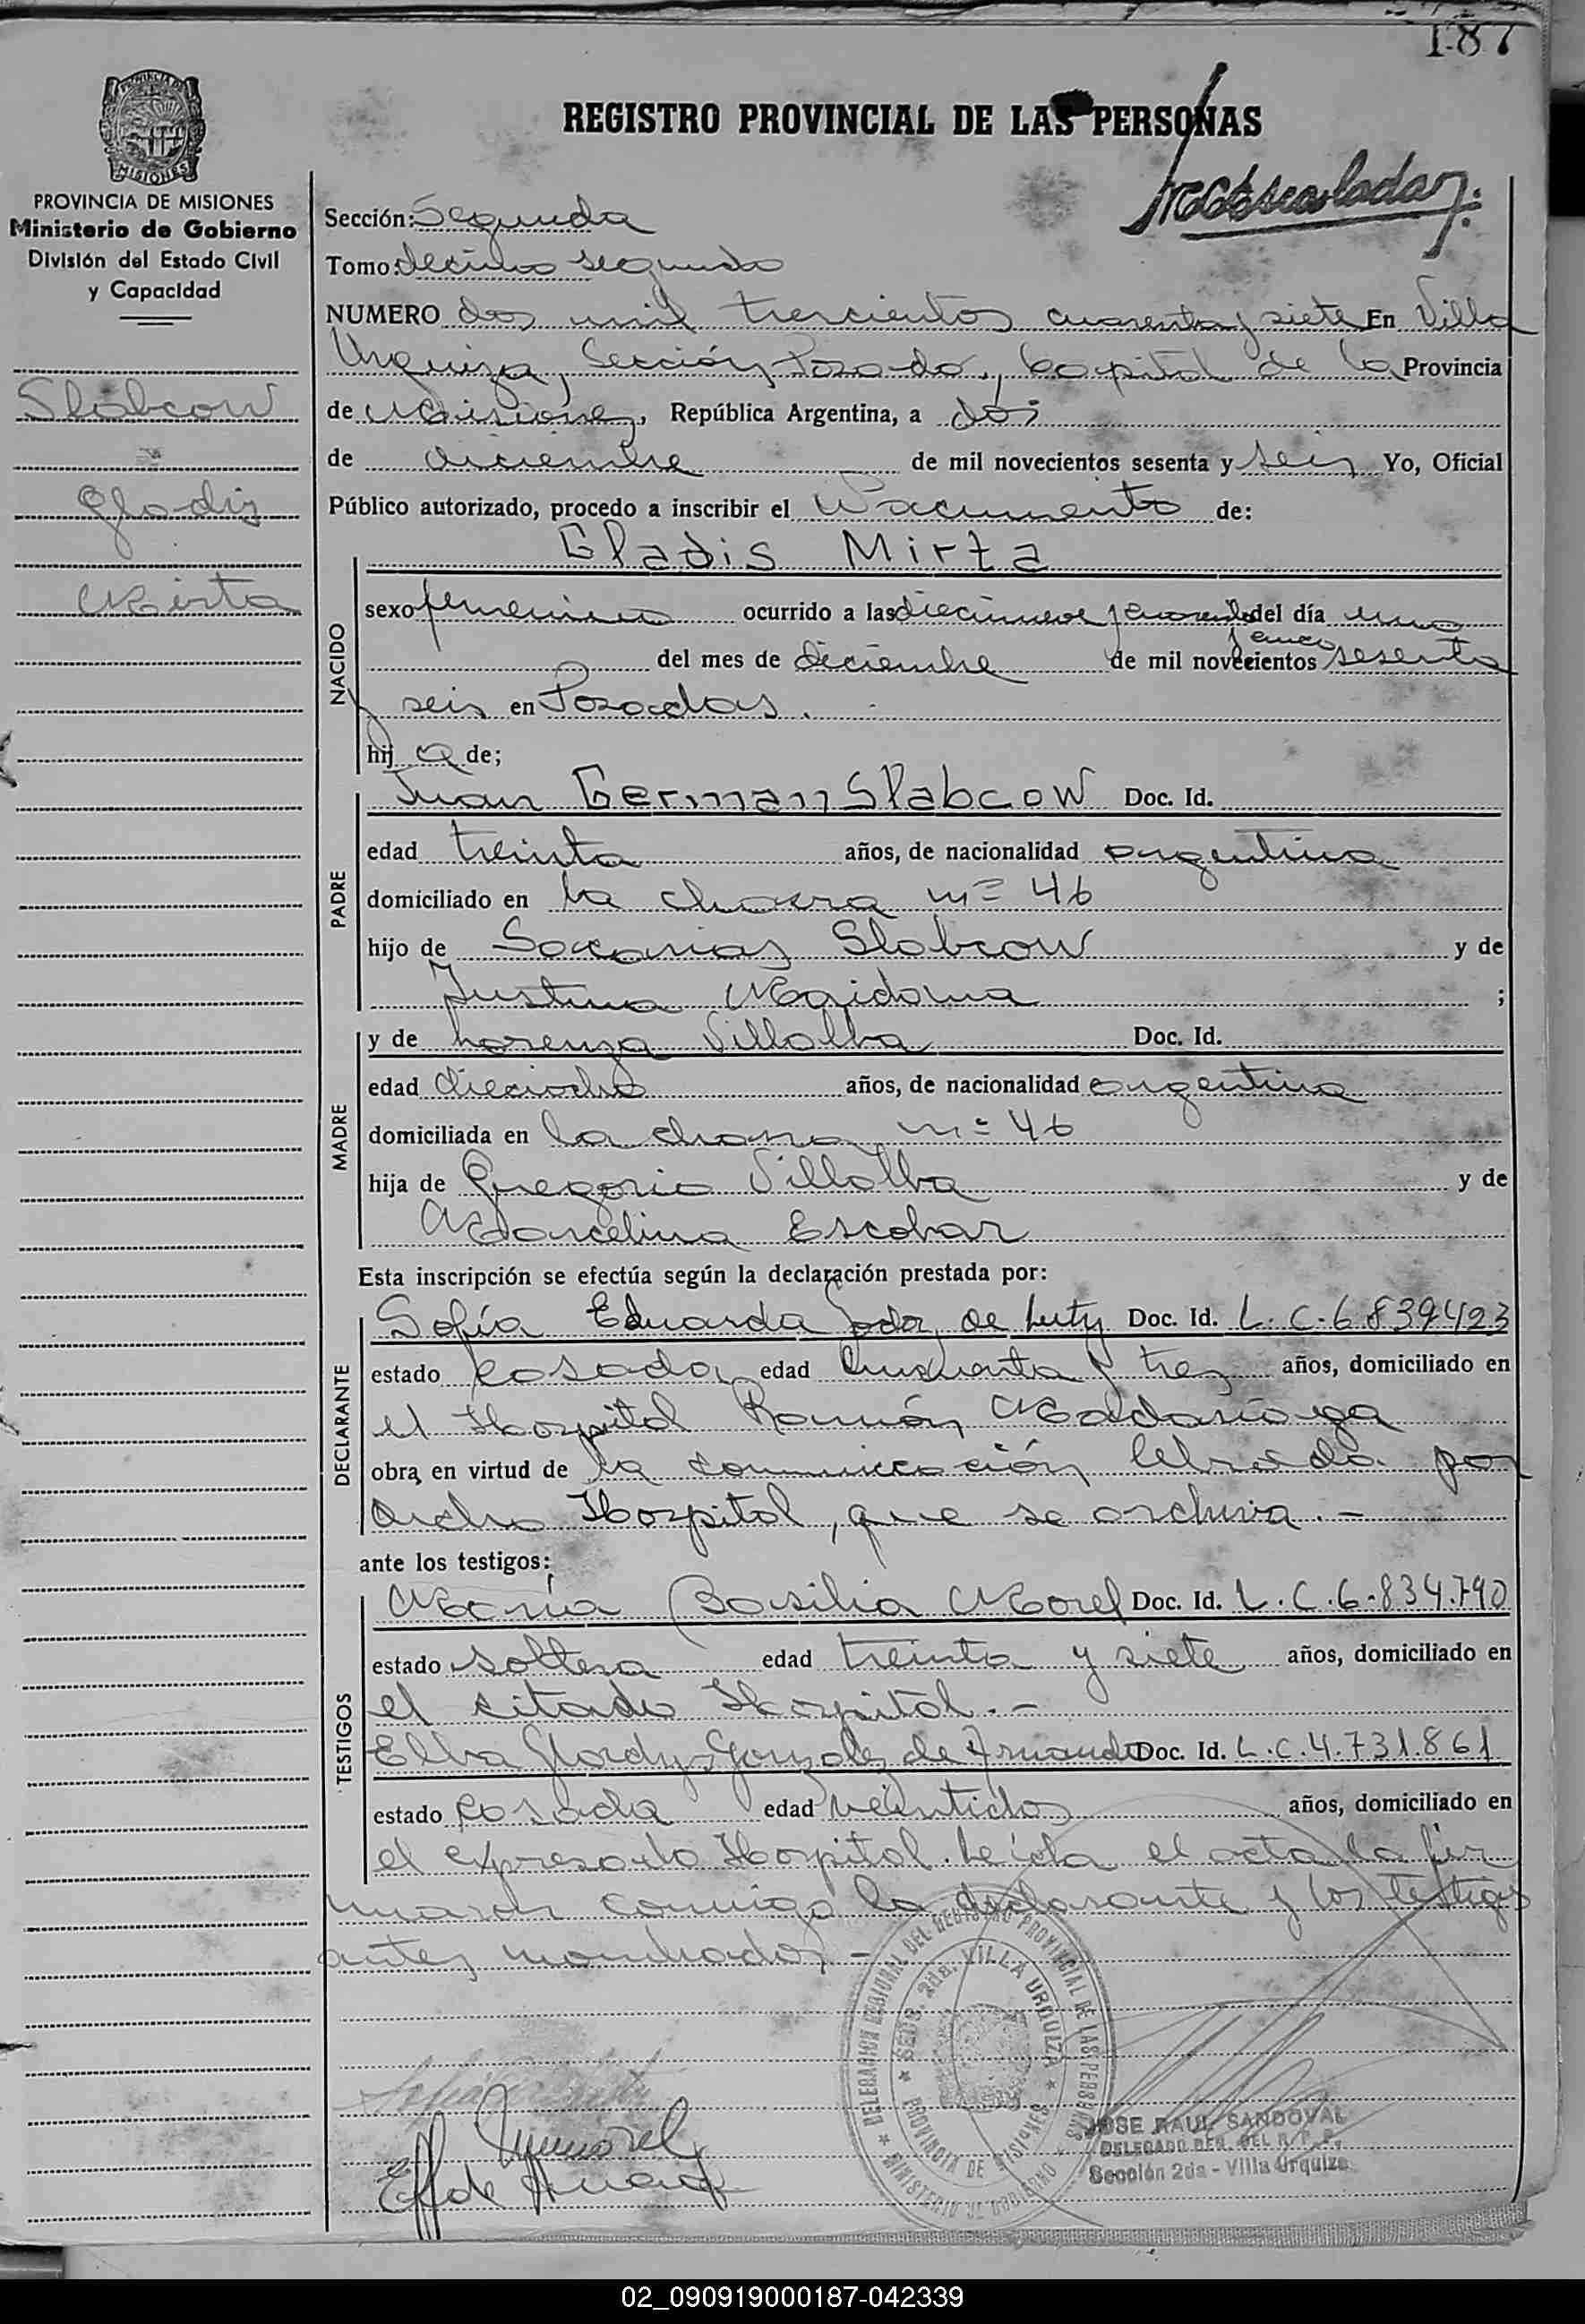 187
REGISTRO PROVINCIAL DE LAS PERSONAS
PROVINCIA DE MISIONES
Ministerio de Gobierno
División del Estado Civil
y Capacidad
Slabcow
Gladis
Mirta
Sección: Segunda
Tomo: decimo segundo
NUMERO dos mil trescientos cuarenta y siete En Villa
Urquiza, Sección Posadas, Capital de la Provincia
de Misiones, República Argentina, a dos
de diciembre de mil novecientos sesenta y seis Yo, Oficial
Público autorizado, procedo a inscribir el Nacimiento de:
Gladis Mirta
NACIDO
sexo femenino ocurrido a las diecinueve y cuarenta y cinco del día uno
del mes de diciembre de mil novecientos sesenta
y seis en Posadas.
hija de;
PADRE
Juan German Slabcow Doc. Id.
edad treinta años, de nacionalidad argentina
domiciliado en la chacra nº 46
hijo de Sacarias Slabcow y de
Justina Maidana ;
MADRE
y de Lorenza Villalba Doc. Id.
edad dieciocho años, de nacionalidad argentina
domiciliada en la chacra nº 46
hija de Gregorio Villalba y de
Marcelina Escobar
Esta inscripción se efectúa según la declaración prestada por:
DECLARANTE
Sofía Eduarda de Luty Doc. Id. L.C. 6.839.423
estado casada edad cincuenta y tres años, domiciliado en
el Hospital Ramón Madariaga
obra en virtud de la comunicación librada por
dicho Hospital, que se archiva.-
ante los testigos:
TESTIGOS
María Basilia Morel Doc. Id. L.C. 6.834.790
estado soltera edad treinta y siete años, domiciliado en
el citado Hospital.-
Elba Gladys Gonzalez de Doc. Id. L.C. 4.731.861
estado casada edad veintidos años, domiciliado en
el expresado Hospital. Leída el acta la fir
maron conmigo la declarante y los testigos
antes nombrados.-
DELEGACION REGIONAL DEL REGISTRO PROVINCIAL DE LAS PERSONAS
MINISTERIO DE GOBIERNO
SECC. 2da. VILLA URQUIZA
PROVINCIA DE MISIONES
JOSE RAUL SANDOVAL
DELEGADO REG. DEL R. P. P.
Sección 2da - Villa Urquiza
02_090919000187-042339